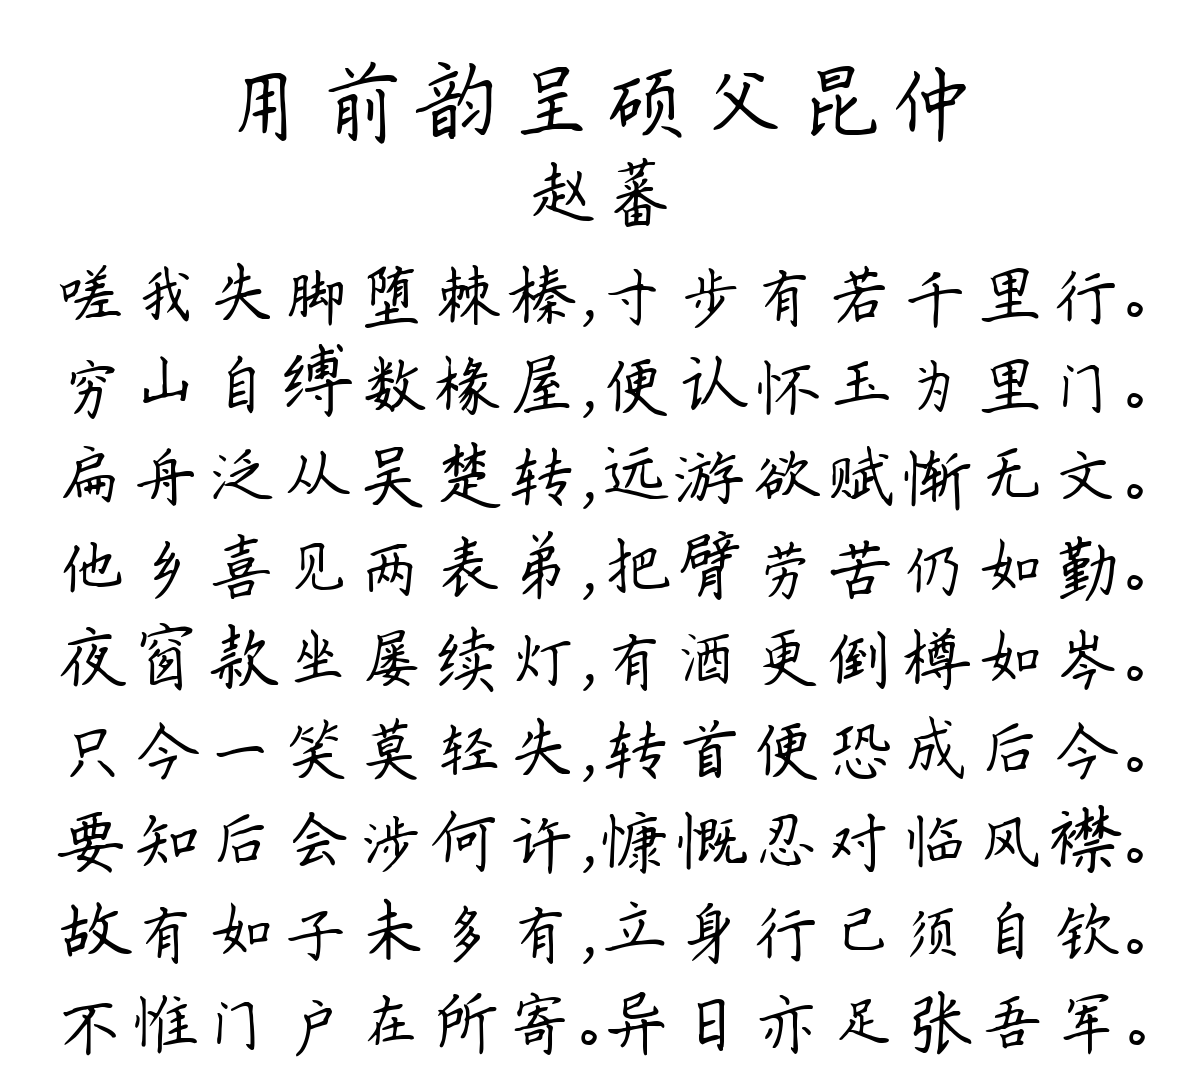 用前韵呈硕父昆仲
赵蕃
嗟我失脚堕棘榛,寸步有若千里行。
穷山自缚数椽屋,便认怀玉为里门。
扁舟泛从吴楚转,远游欲赋惭无文。
他乡喜见两表弟,把臂劳苦仍如勤。
夜窗款坐屡续灯,有酒更倒樽如岑。
只今一笑莫轻失,转首便恐成后今。
要知后会涉何许,慷慨忍对临风襟。
故有如子未多有,立身行己须自钦。
不惟门户在所寄。异日亦足张吾军。